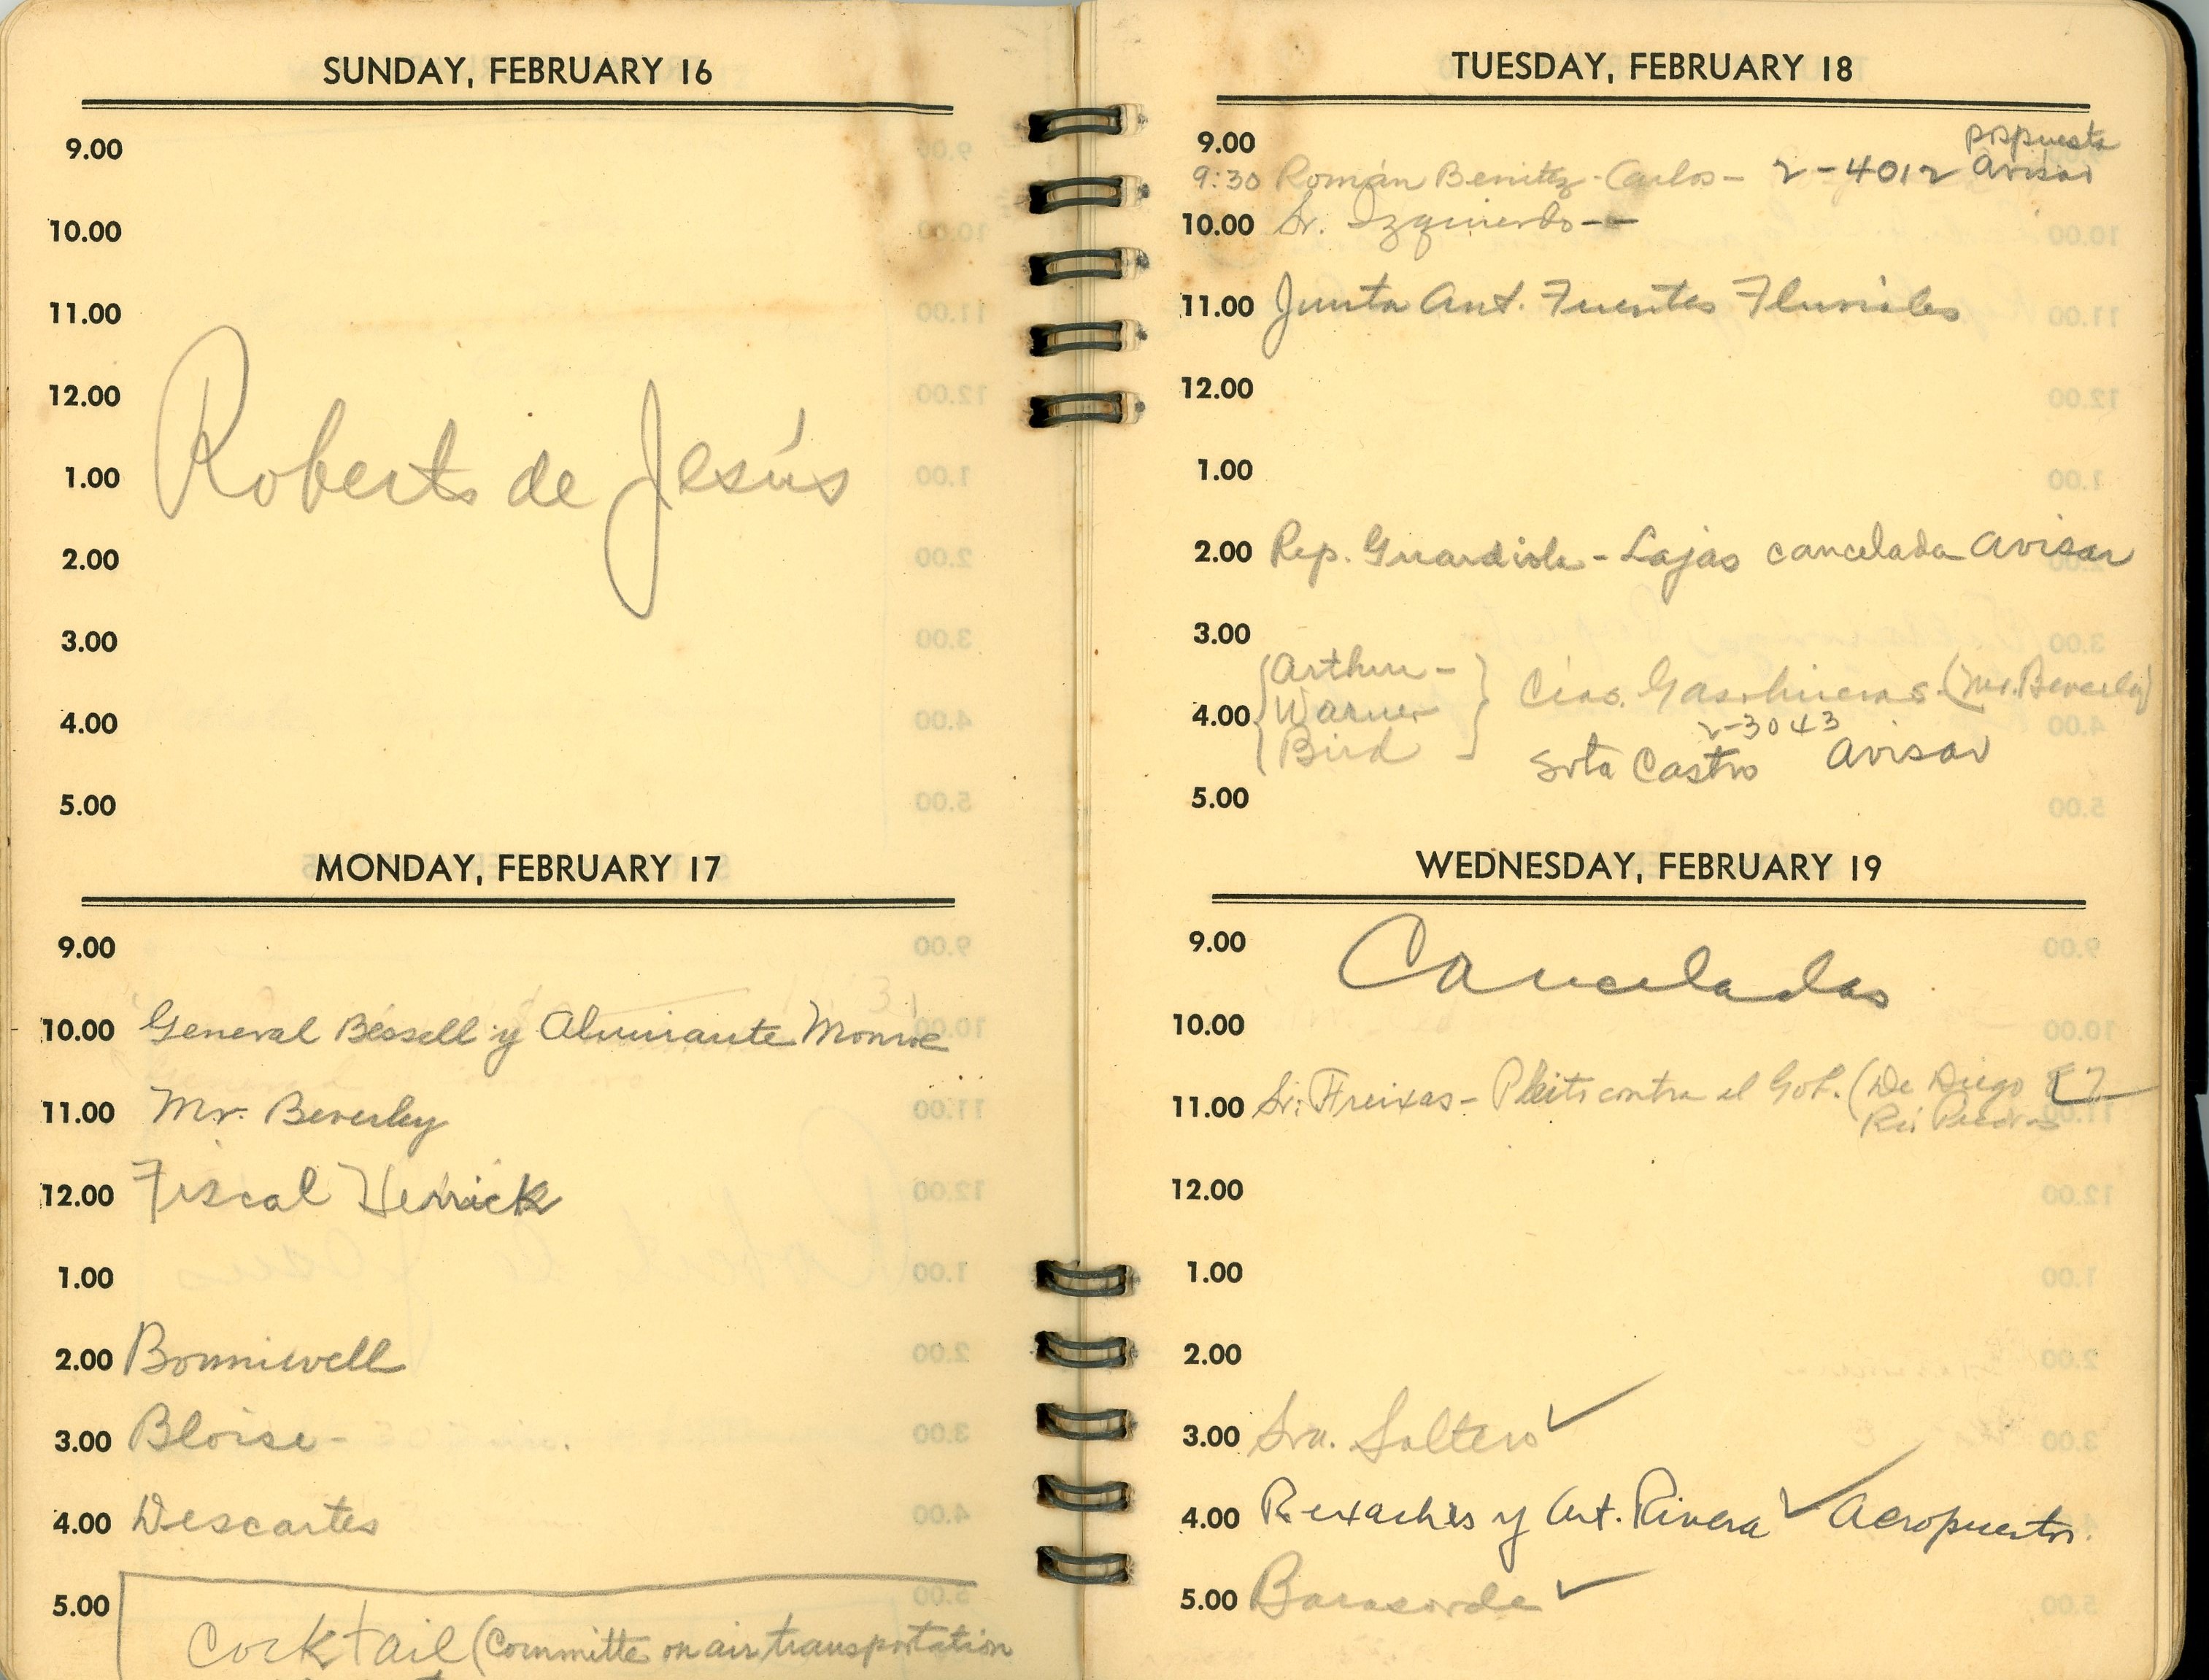 SUNDAY, FEBRUARY 16
9.00
10.00
11.00
12.00
Roberto de Jesús
1.00
2.00
3.00
4.00
5.00
MONDAY, FEBRUARY 17
9.00
10.00 General Bessell y Almirante Monroe
11.00 Mr. Beverley
12.00 Fiscal Herrick
1.00
2.00 Bonniwell
3.00 Bloise-
4.00 Descartes
5.00
Cocktail (Committe on air transportation
TUESDAY, FEBRUARY 18
9.00 pospuesta
9:30 Román Benitez-Carlos- 2-4012 avisar
10.00 Sr. Izquierdo--
11.00 Junta Aut. Fuentes Fluviales
12.00
1.00
2.00 Rep. Guardiola - Lajas cancelada avisar
3.00
Arthur -
4.00 Warner Cías. Gasolineras. (Mr. Beverley)
2-3043
Bird Srta Castro avisar
5.00
WEDNESDAY, FEBRUARY 19
9.00 Canceladas
10.00
11.00 Sr. Freixas- Pleito contra el Gob. (De Diego
Río Piedras
12.00
1.00
2.00
3.00 Sra. Soltero ✓
4.00 Rexach y Aut. Rivera ✓ Aeropuertos.
5.00 Barasorda ✓